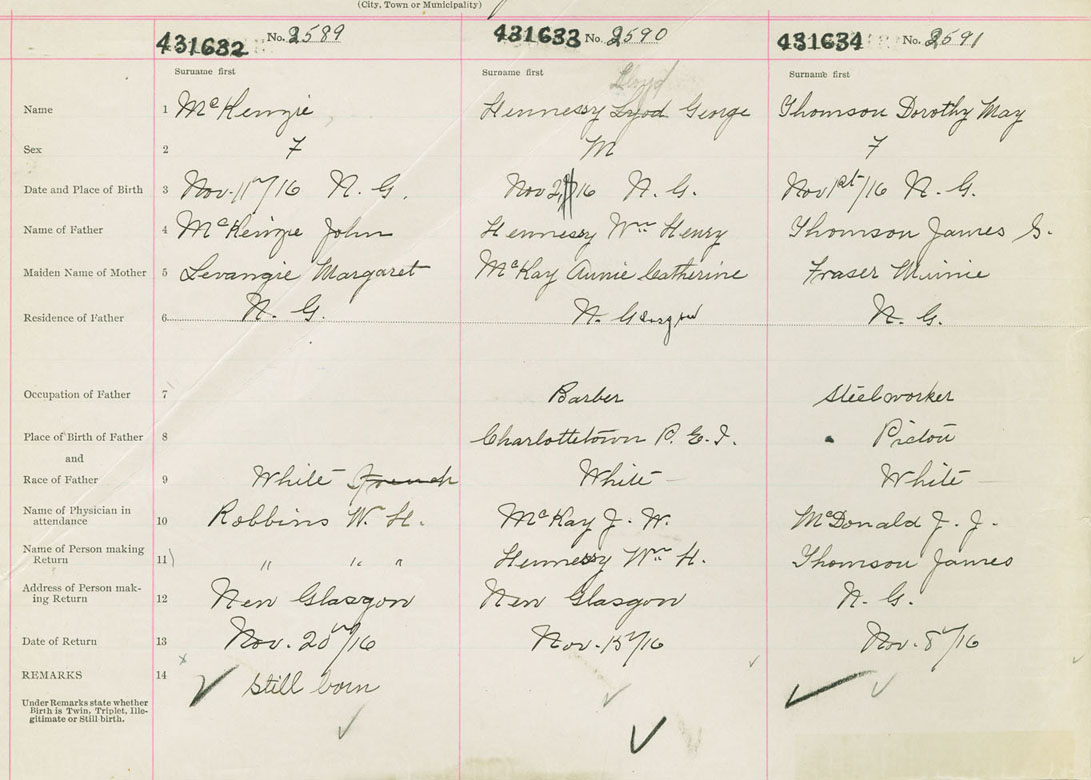 (City, Town or Municipality)
431632 No. 2589 431633 No. 2590 431634 No. 2591
Surname first Surname first Surname first
Lloyd
Name 1 McKenzie Hennessy Lyod George Thomson Dorothy May
Sex 2 F M F
Date and Place of Birth 3 Nov. 11th/16 N. G. Nov 2/16 N. G. Nov 1st/16 N. G.
Name of Father 4 McKenzie John Hennessy Wm Henry Thomson James G.
Maiden Name of Mother 5 Levangie Margaret McKay Annie Catherine Fraser Minnie
Residence of Father 6 N. G. N. Glasgow N. G.
Occupation of Father 7 Barber Steelworker
Place of Birth of Father 8 Charlottetown P. E. I. Pictou
and
Race of Father 9 White French White White
Name of Physician in
attendance 10 Robbins W. H. McKay J. W. McDonald J. J.
Name of Person making
Return 11 " " " Hennessy Wm H. Thomson James
Address of Person mak-
ing Return 12 New Glasgow New Glasgow N. G.
Date of Return 13 Nov. 20th/16 Nov. 15th/16 Nov. 8th/16
REMARKS 14 Still born
Under Remarks state whether
Birth is Twin, Triplet, Ille-
gitimate or Still birth.